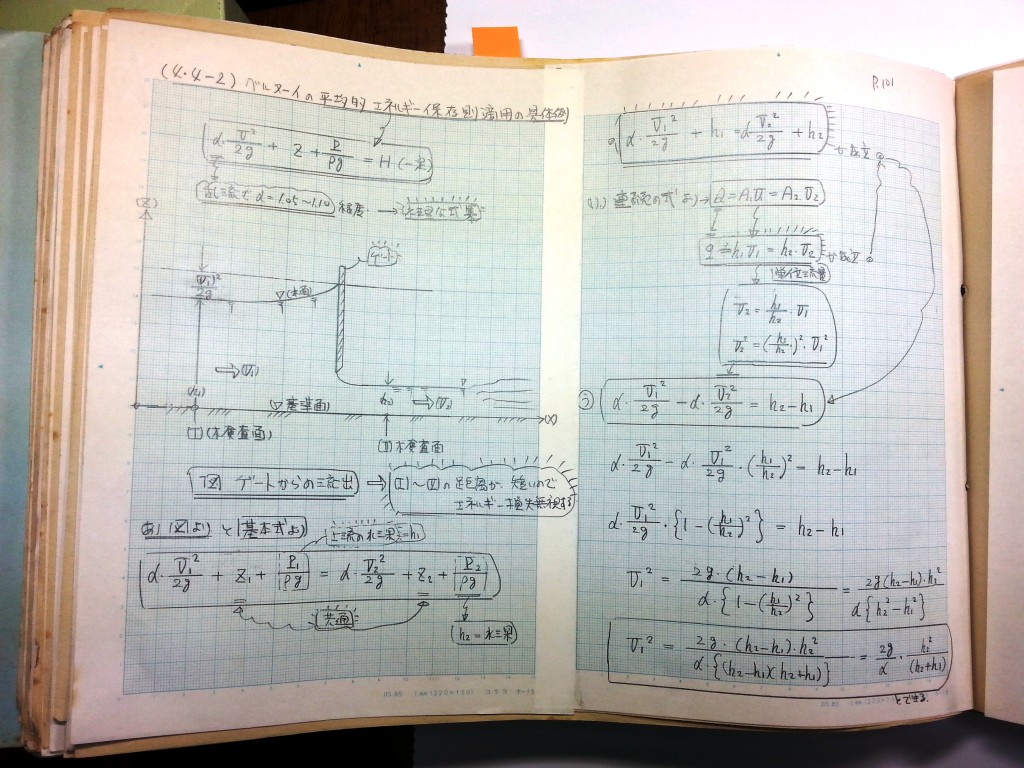 (4・4-2) ベルヌーイの平均的エネルギー保存則適用の具体例
α・v²/2g + Z + P/ρg = H (一定)
乱流で α=1.05~1.10 程度 →
(Z)
ゲート
(v₁)²/2g
▽(水面)
⇒(v₁)
(h₂)
⇒(v₂)
▽基準面
(x)
(Ⅰ)(水検査面)
(Ⅱ)水検査面
下図 ゲートからの流出 ⇒ (Ⅰ)~(Ⅱ)の距離が、短いので
エネルギー損失無視する
あ) 図より と 基本式より
上流の水深=h₁
α・v₁²/2g + Z₁ + P₁/ρg = α・v₂²/2g + Z₂ + P₂/ρg
共通
h₂=水深
P.101
α・v₁²/2g + h₁ = α・v₂²/2g + h₂ が成立
い) 連続の式より → Q = A₁v₁ = A₂・v₂
q = h₁v₁ = h₂・v₂ が成立
単位流量
v₂ = h₁/h₂・v₁
v₂² = (h₁/h₂)²・v₁²
α・v₁²/2g - α・v₂²/2g = h₂-h₁
α・v₁²/2g - α・v₁²/2g・(h₁/h₂)² = h₂-h₁
α・v₁²/2g・{1-(h₁/h₂)²} = h₂-h₁
v₁² = 2g・(h₂-h₁)/α・{1-(h₁/h₂)²} = 2g(h₂-h₁)・h₂²/α{h₂²-h₁²}
v₁² = 2g・(h₂-h₁)・h₂²/α・{(h₂-h₁)(h₂+h₁)} = 2g/α・h₂²/(h₂+h₁)
とできる。